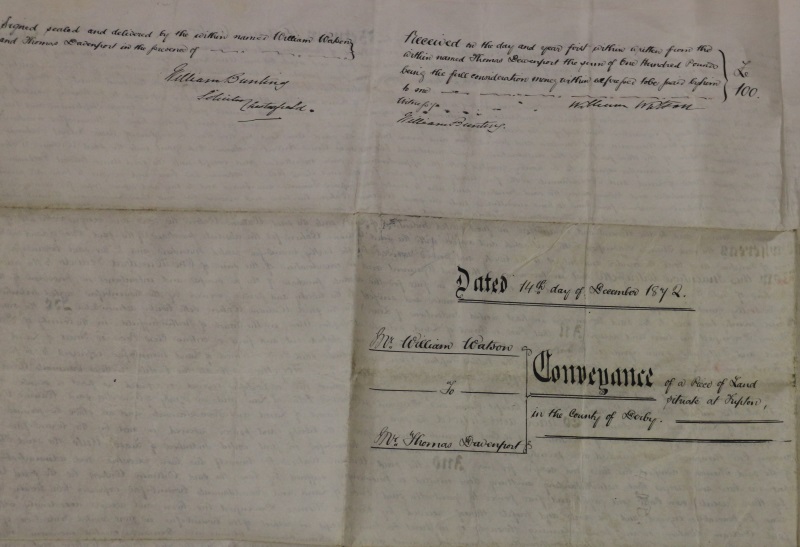 Signed sealed and delivered by the within named William Watson
and Thomas Davenport in the presence of
William Bunting
Solicitor Chesterfield.
Received on the day and year first within written from the
within named Thomas Davenport the sum of One Hundred Pounds
being the full consideration money within expressed to be paid by him
to me
£
100.
William Watson
Witness
William Bunting.
Dated 14th day of December 1872.
Mr. William Watson
To
Mr. Thomas Davenport
Conveyance of a piece of Land
situate at Tupton,
in the County of Derby.